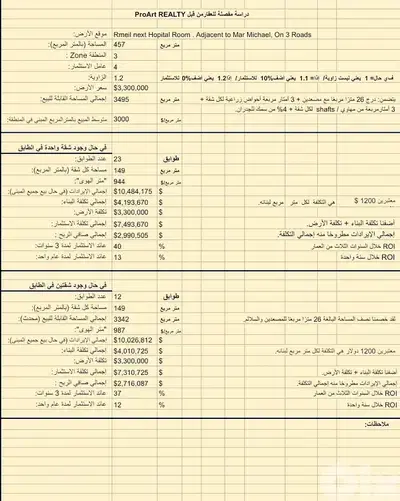 دراسة مفصلة للعقارمن قبل ProArt REALTY
موقع الأرض: Rmeil next Hopital Room . Adjacent to Mar Michael, On 3 Roads
المساحة (بالمتر المربع): 457 متر مربع
المنطقة Zone : 3
عامل الاستثمار: 4
الزاوية: 1.2 في حال= 1 يعني ليست زاوية/ اذا= 1.1 يعني اضف 10% للاستثمار/ اذا 1.2 يعني اضف 20% للاستثمار
سعر الأرض: $3,300,000
إجمالي المساحة القابلة للبيع: 3495 متر مربع يتضمن: درج 26 مترًا مربعًا مع مصعدين + 3 أمتار مربعة أحواض زراعية لكل شقة +
3 أمتارمربعة من مهاوي / shafts لكل شقة + 4% من سمك للجدران.
متوسط المبيع بالمترالمربع المبني في المنطقة: 3000 متر مربع/$
في حال وجود شقة واحدة في الطابق
عدد الطوابق: 23 طوابق
مساحة كل شقة (بالمتر المربع): 149 متر مربع
"متر الهوى": 944 متر مربع/$
إجمالي الإيرادات (في حال بيع جميع المبنى): $10,484,175 $
إجمالي تكلفة البناء: $4,193,670 $ معتبرين 1200 $ هي التكلفة لكل متر مربع لبنائه.
تكلفة الأرض: $3,300,000 $
إجمالي تكلفة الاستثمار: $7,493,670 $ أضفنا تكلفة البناء + تكلفة الأرض.
إجمالي صافي الربح : $2,990,505 $ إجمالي الإيرادات مطروحا منه إجمالي التكلفة.
عائد الاستثمار لمدة 3 سنوات: 40 % ROI خلال السنوات الثلاث من العمار
عائد الاستثمار لمدة عام واحد: 13 % ROI خلال سنة واحدة
في حال وجود شقتين في الطابق
عدد الطوابق: 12 طوابق
مساحة كل شقة (بالمتر المربع): 149 متر مربع
إجمالي المساحة القابلة للبيع (محدث): 3342 متر مربع لقد خصمنا نصف المساحة البالغة 26 مترًا مربعًا للمصعدين والسلالم
"متر الهوى": 987 متر مربع/$
إجمالي الإيرادات (في حال بيع جميع المبنى): $10,026,812 $
إجمالي تكلفة البناء: $4,010,725 $ معتبرين 1200 دولار هي التكلفة لكل متر مربع لبنائه.
تكلفة الأرض: $3,300,000 $
إجمالي تكلفة الاستثمار: $7,310,725 $ أضفنا تكلفة البناء + تكلفة الأرض.
إجمالي صافي الربح : $2,716,087 $ إجمالي الإيرادات مطروحا منه إجمالي التكلفة.
عائد الاستثمار لمدة 3 سنوات: 37 % ROI خلال السنوات الثلاث من العمار
عائد الاستثمار لمدة عام واحد: 12 % ROI خلال سنة واحدة
ملاحظات: